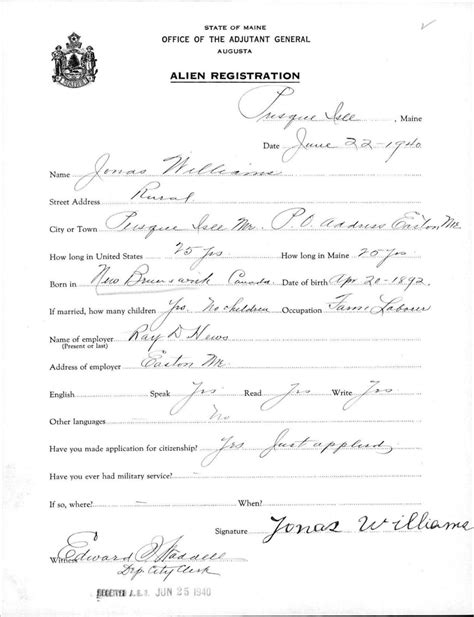 STATE OF MAINE
OFFICE OF THE ADJUTANT GENERAL
AUGUSTA
ALIEN REGISTRATION
Presque Isle, Maine
Date June 22-1940
Name Jonas Williams
Street Address Rural
City or Town Presque Isle Me. P.O. Address Easton Me
How long in United States 25 yrs How long in Maine 25 yrs
Born in New Brunswick Canada Date of birth Apr 20-1892
If married, how many children Yrs. No children Occupation Farm Laborer
Name of employer Ray D Hews
(Present or last)
Address of employer Easton Me.
English Speak Yes Read Yes Write Yes
Other languages No
Have you made application for citizenship? Yes Just applied
Have you ever had military service?
If so, where? When?
Signature Jonas Williams
Witness Edward
Dep. City Clerk
RECEIVED A.G.O. JUN 25 1940